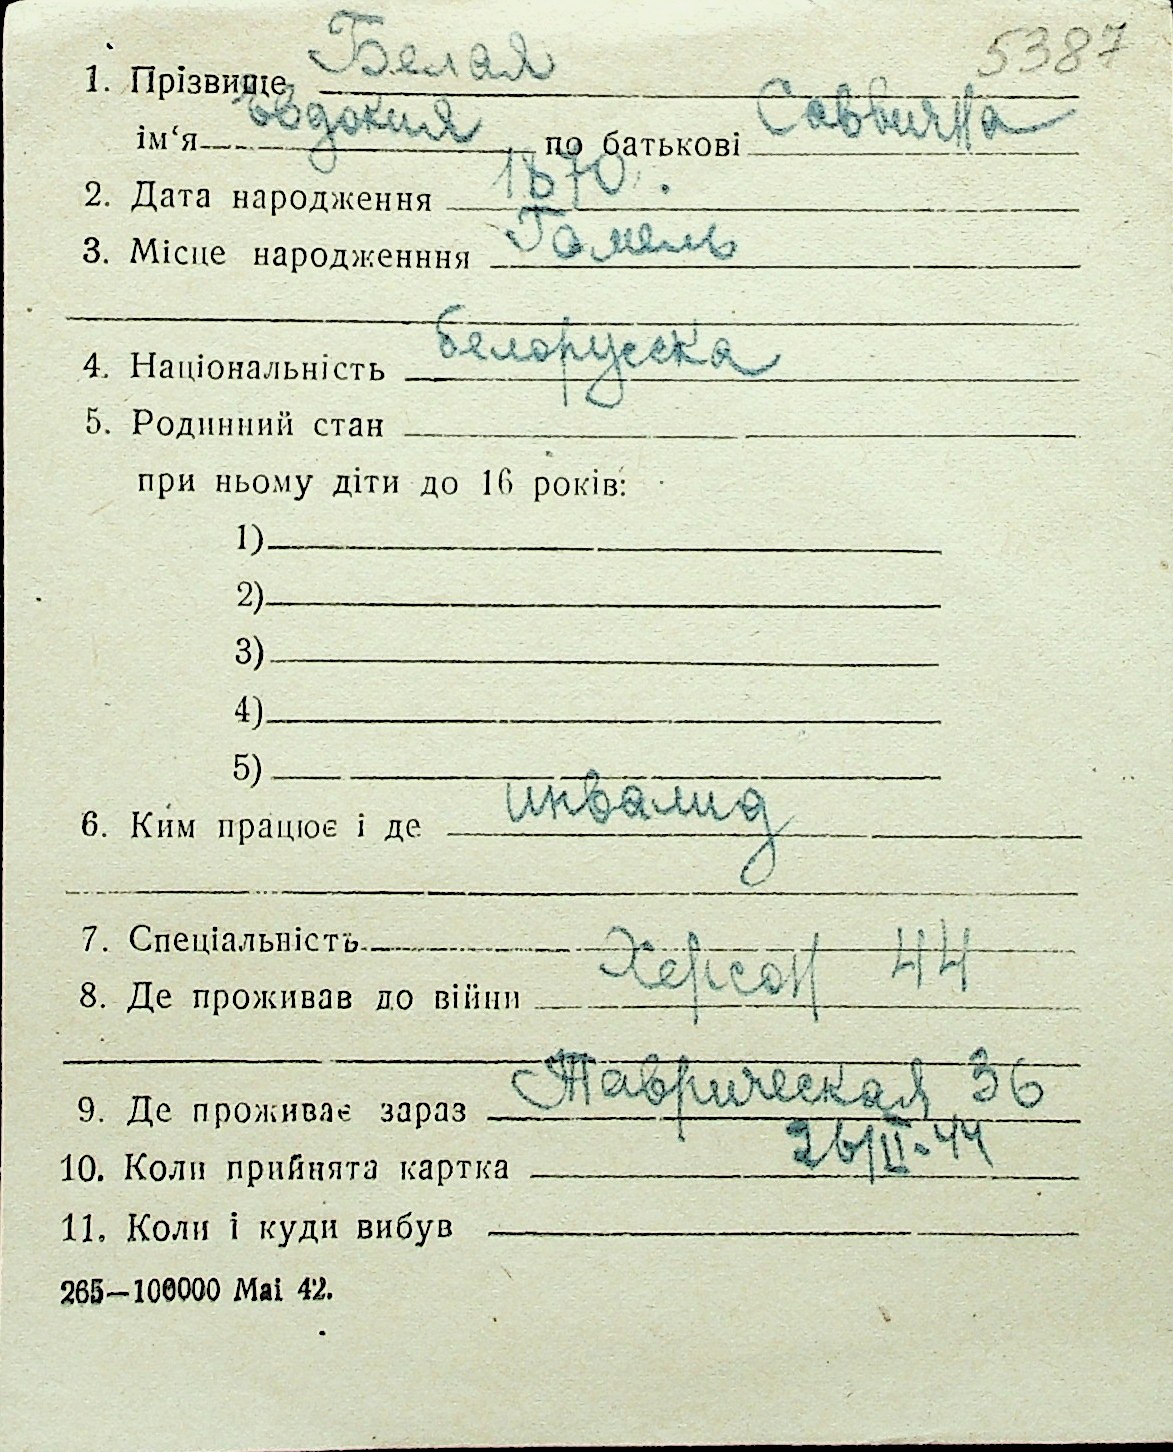 5387
1. Прізвище Белая
ім‘я Евдокия по батькові Саввична
2. Дата народження 1870.
3. Місце народженння Гомель
4. Національність белорусска
5. Родинний стан
при ньому діти до 16 років:
1)
2)
3)
4)
5)
6. Ким працює і де инвалид
7. Спеціальність
8. Де проживав до війни Херсон 44
9. Де проживає зараз Таврическая 36
10. Коли прийнята картка 26/II-44
11. Коли і куди вибув
265—100000 Mai 42.